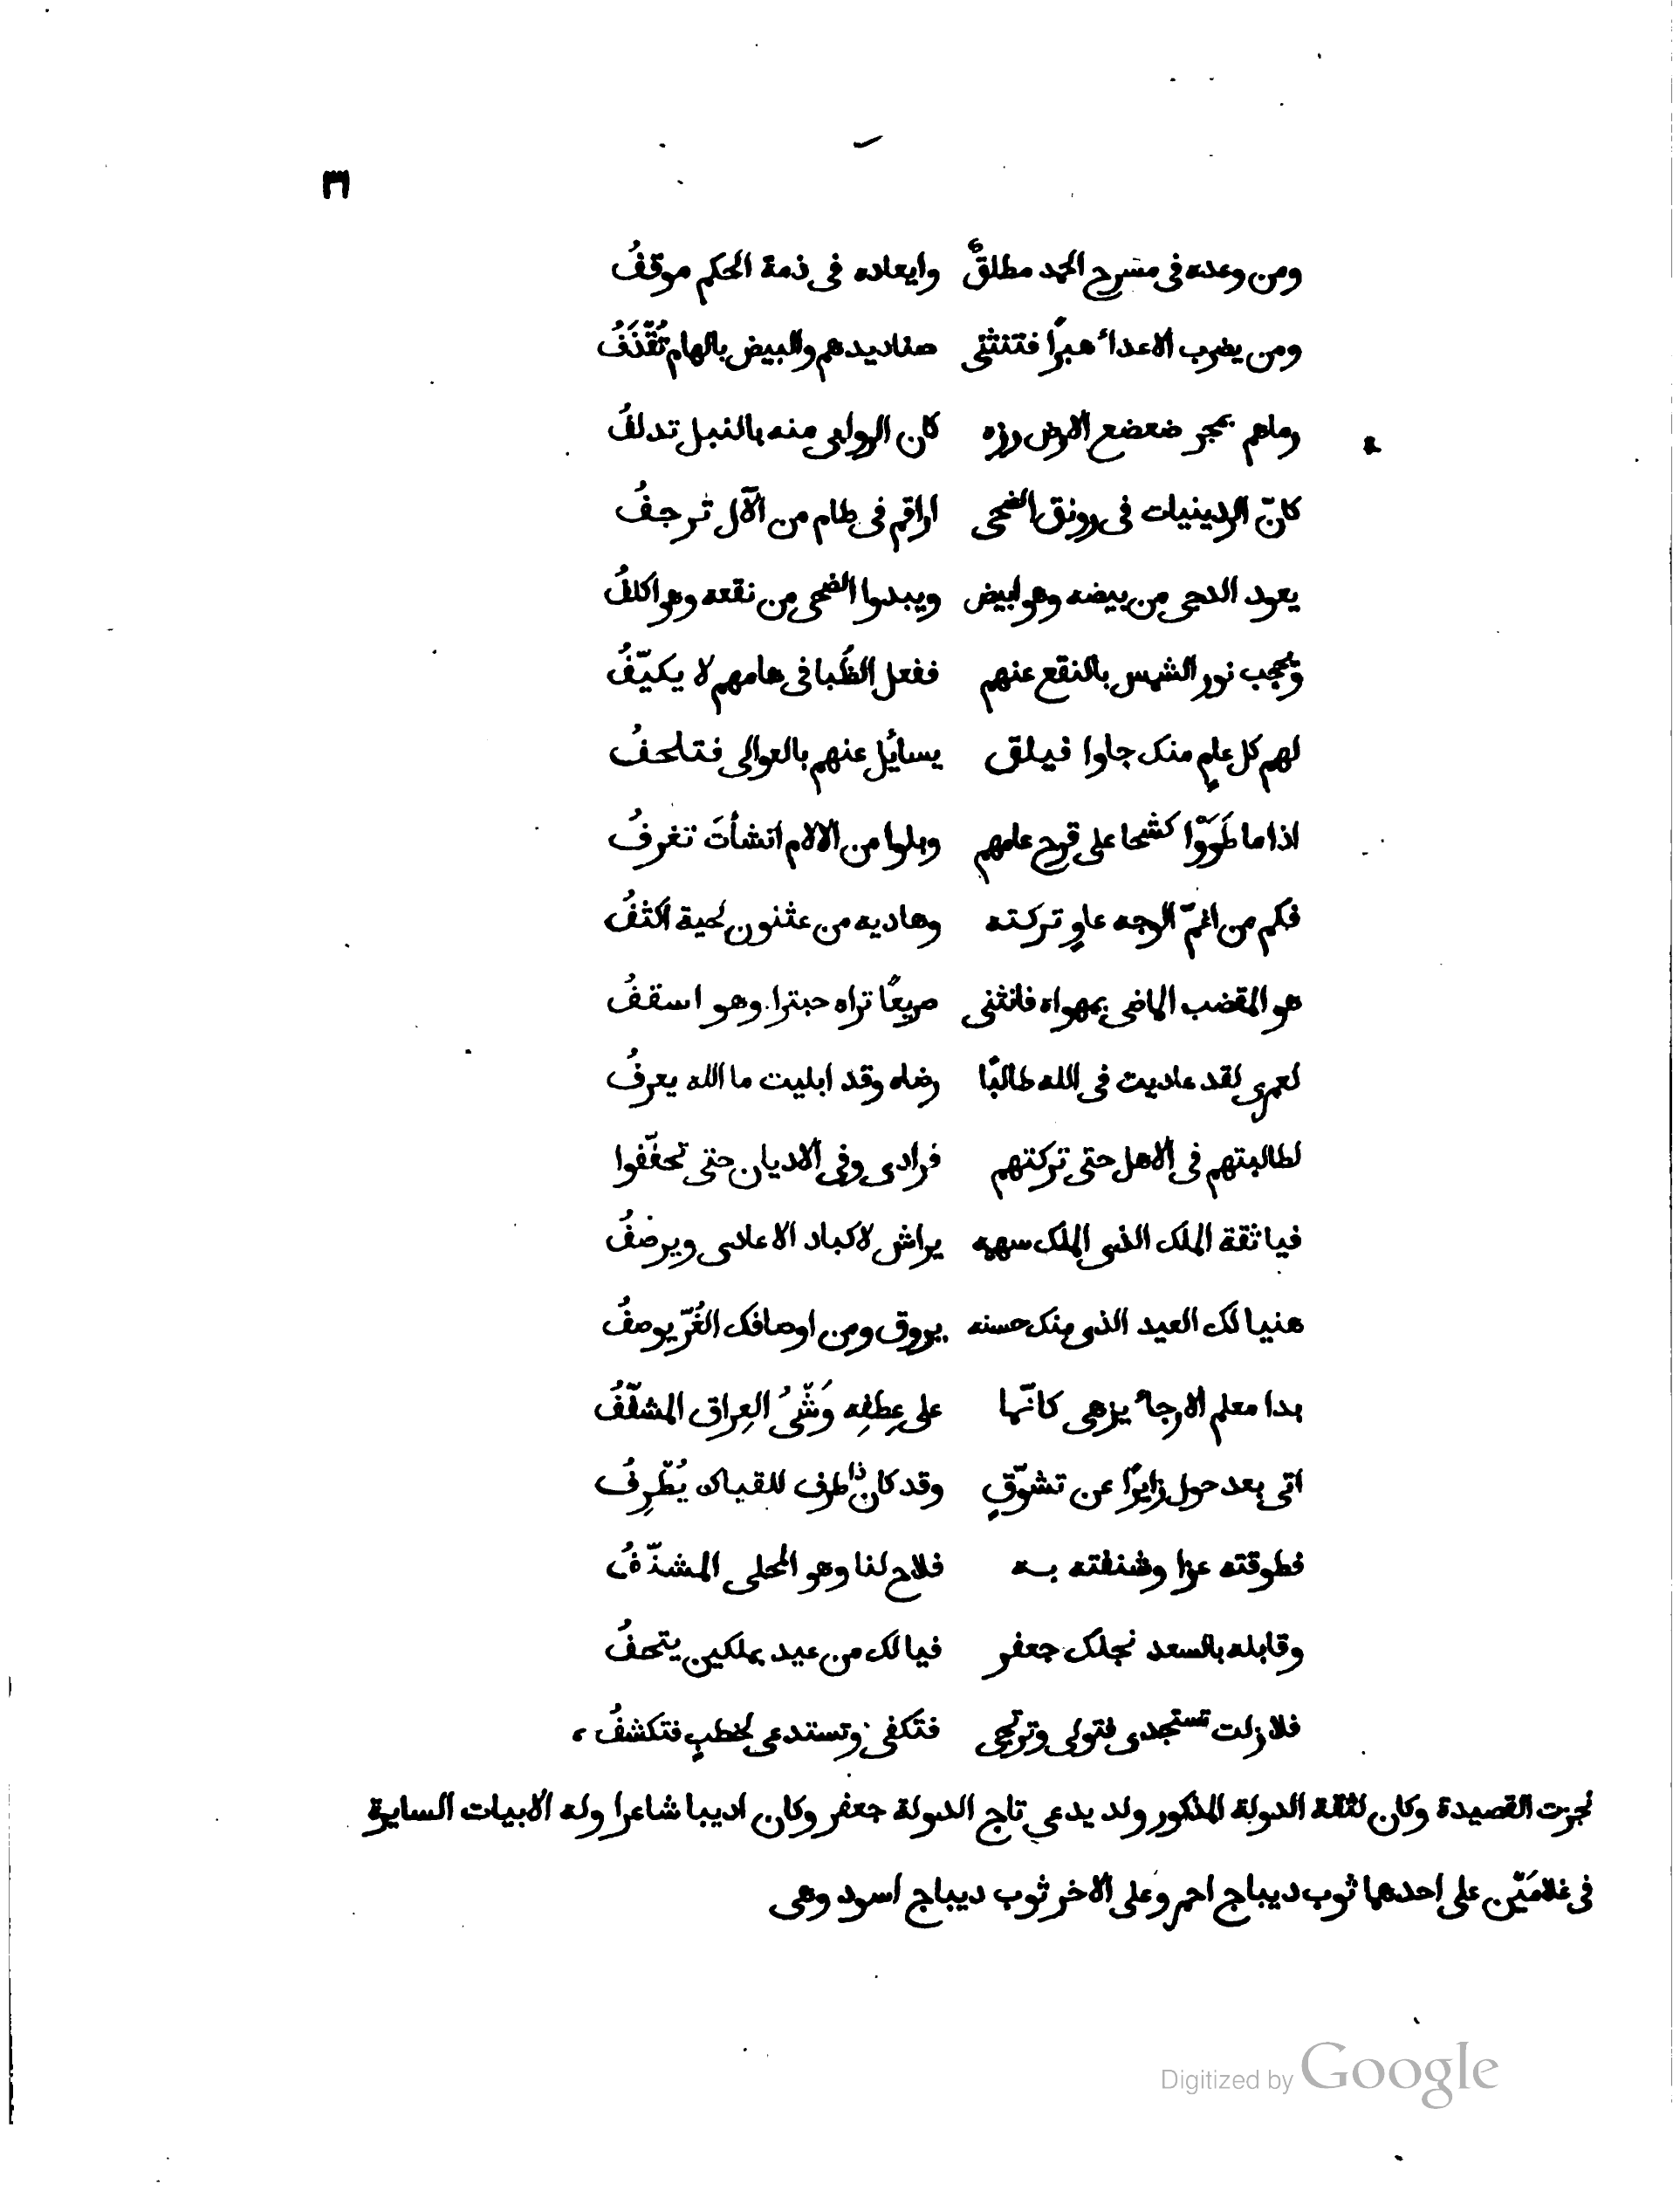 ٣
ومن وعده فى مسرح المجد مطلقٌ وايعاده فى ذمة الحكم موقفُ
ومن يضرب الاعداء هبرًا فتنثنى صناديدهم والبيض بالهام تُقْذَفُ
رماهم بمجر ضعضع الارض رزه كان الروابى منه بالنبل تدلفُ
كانّ الردينيات فى رونق الضحى اراقم فى طام من الآل ترجفُ
يعود الدجى من بيضه وهو ابيض ويبدوا الضحى من نقعه وهو اكلفُ
وتحجب نور الشمس بالنقع عنهم ففعل الظُبا فى هامهم لا يكيّفُ
لهم كل عامٍ منك جاوا فيلق يسايُل عنهم بالعوالى فتلحفُ
اذا ما طَوَوْا كشحا على قرح عامهم وبلوا من الالام انشأتَ تغرفُ
فكم من اغمّ الوجه عاوٍ تركته وهاديه من عثنون لحية اكثفُ
هو المقضب الماضى بمهواه فانثنى صريعًا تراه حبترا وهو اسقفُ
لعمرى لقد عاديت فى الله طالبًا رضاه وقد ابليت ما الله يعرفُ
لطالبتهم فى الاهل حتى تركتهم فرادى وفى الاديان حتى تحنّفوا
فيا ثقة الملك الذى الملك سهمه يراش لاكباد الاعادى ويرصفُ
هنيا لك العيد الذى منك حسنه يروق ومن اوصافك الغُرّ يوصفُ
بدا معلم الارجاء يزهى كانّما على عِطفِه وَشْىُ العِراق المشفّفُ
اتى بعد حول زايرًا عن تشوّقٍ وقد كان ذا طرف للقياك يُطْرِفُ
فطوقته عزا وشنفته به فلاح لنا وهو المحلى المشنّفُ
وقابله بالسعد نجلك جعفر فيا لك من عيد بملكين يتحفُ
فلا زلت تستجدى فتولى وترتجى فتكفى وتستدعى لخطبٍ فتكشفُ
نجزت القصيدة وكان لثقة الدولة المذكور ولد يدعى تاج الدولة جعفر وكان اديبا شاعرا وله الابيات السايرة
فى غلامَيْن على احدهما ثوب ديباج احمر وعلى الاخر ثوب ديباج اسود وهى
Digitized by Google